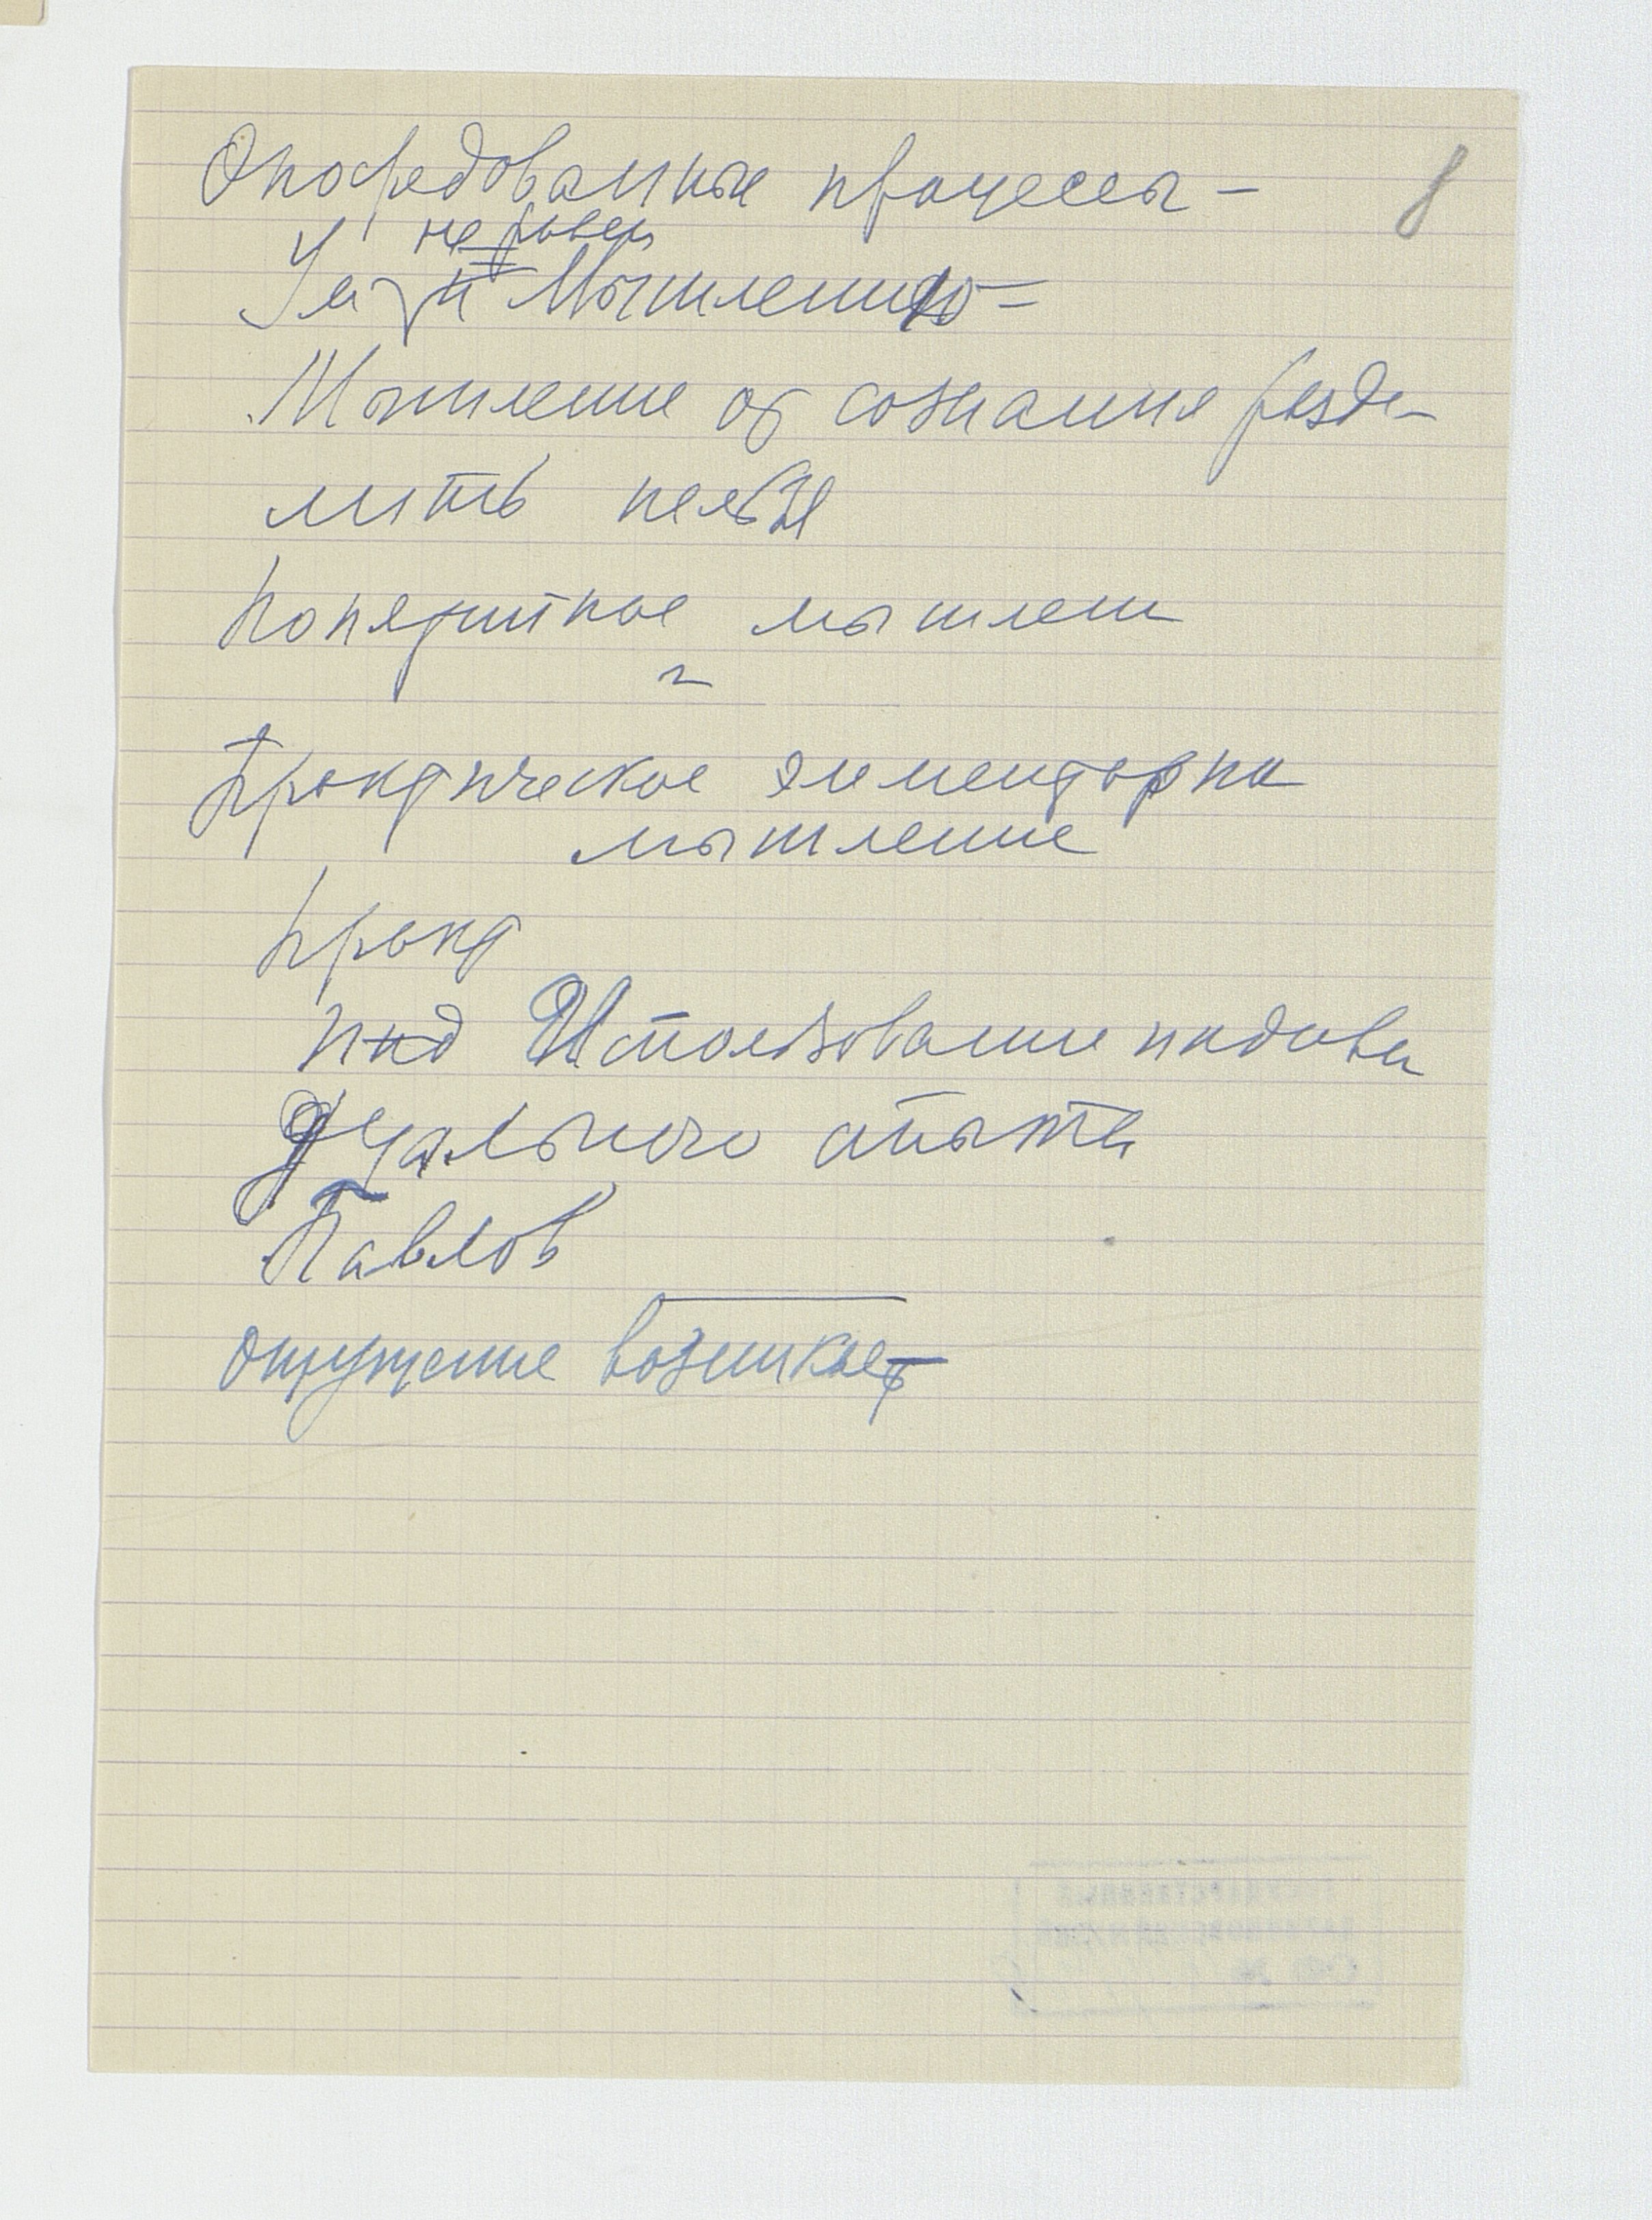 Опосредованные процессы –
8
не равен
Ум и Мышлению –
Мышление от сознания разде-
лить нельзя
Понятийное мышлен
и
Практическое элементарна
мышление
Практ
инд Использование индиви
дуального опыта
Павлов
ощущение возникает